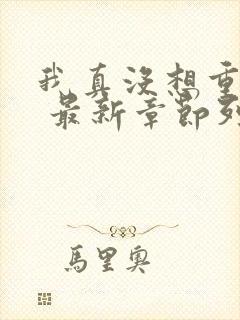 我真沒想重
最新章節列
馬里奧